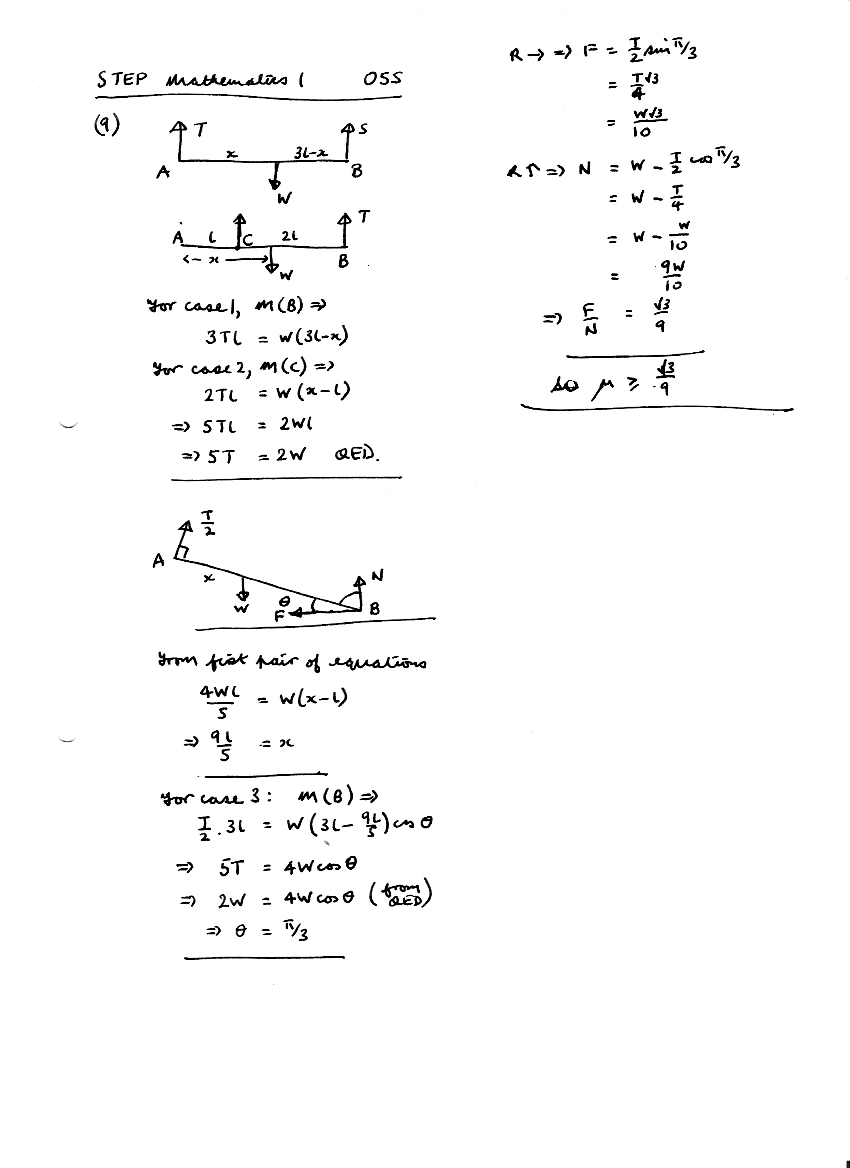 STEP Mathematics 1 OSS
(9)
T S
x 3l-x
A B
W
T
A l C 2l
<- x -> B
W
For case 1, M(B) ⇒
3Tl = W(3l-x)
For case 2, M(C) ⇒
2Tl = W(x-l)
⇒ 5Tl = 2Wl
⇒ 5T = 2W QED.
T/2
A
x N
W θ F B
From first pair of equations
4Wl/5 = W(x-l)
⇒ 9l/5 = x
For case 3: M(B) ⇒
T/2 . 3l = W(3l - 9l/5) cos θ
⇒ 5T = 4W cos θ
⇒ 2W = 4W cos θ (from QED)
⇒ θ = π/3
R → ⇒ F = T/2 sin π/3
= T√3/4
= W√3/10
R↑ ⇒ N = W - T/2 cos π/3
= W - T/4
= W - W/10
= 9W/10
⇒ F/N = √3/9
so μ ≥ √3/9